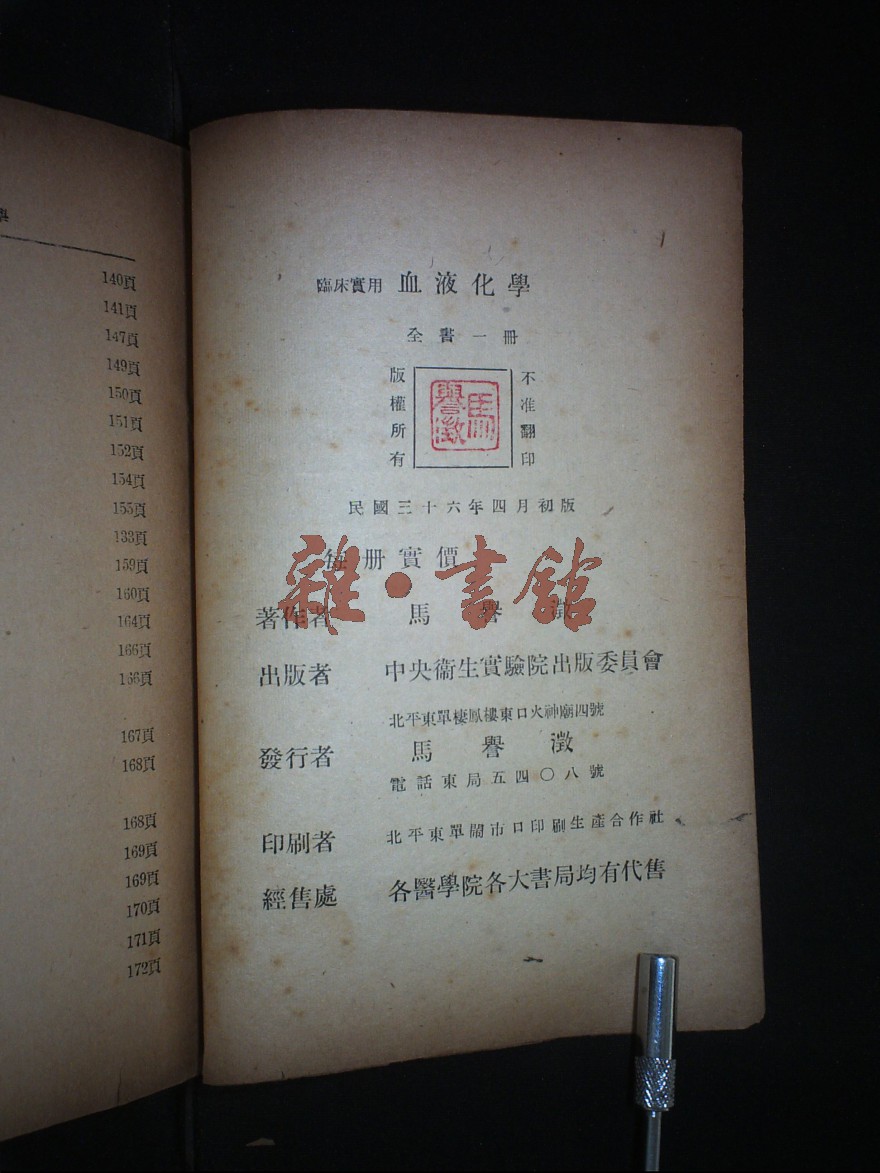 140頁
141頁
147頁
149頁
150頁
151頁
152頁
154頁
155頁
133頁
159頁
160頁
164頁
166頁
166頁
167頁
168頁
168頁
169頁
169頁
170頁
171頁
172頁
臨床實用 血液化學
全書一冊
版權所有
馬譽澂
不准翻印
民國三十六年四月初版
每册實價
雜·書館
著作者 馬譽澂
出版者 中央衞生實驗院出版委員會
北平東單棲鳳樓東口火神廟四號
發行者 馬譽澂
電話東局五四〇八號
印刷者 北平東單閙市口印刷生產合作社
經售處 各醫學院各大書局均有代售